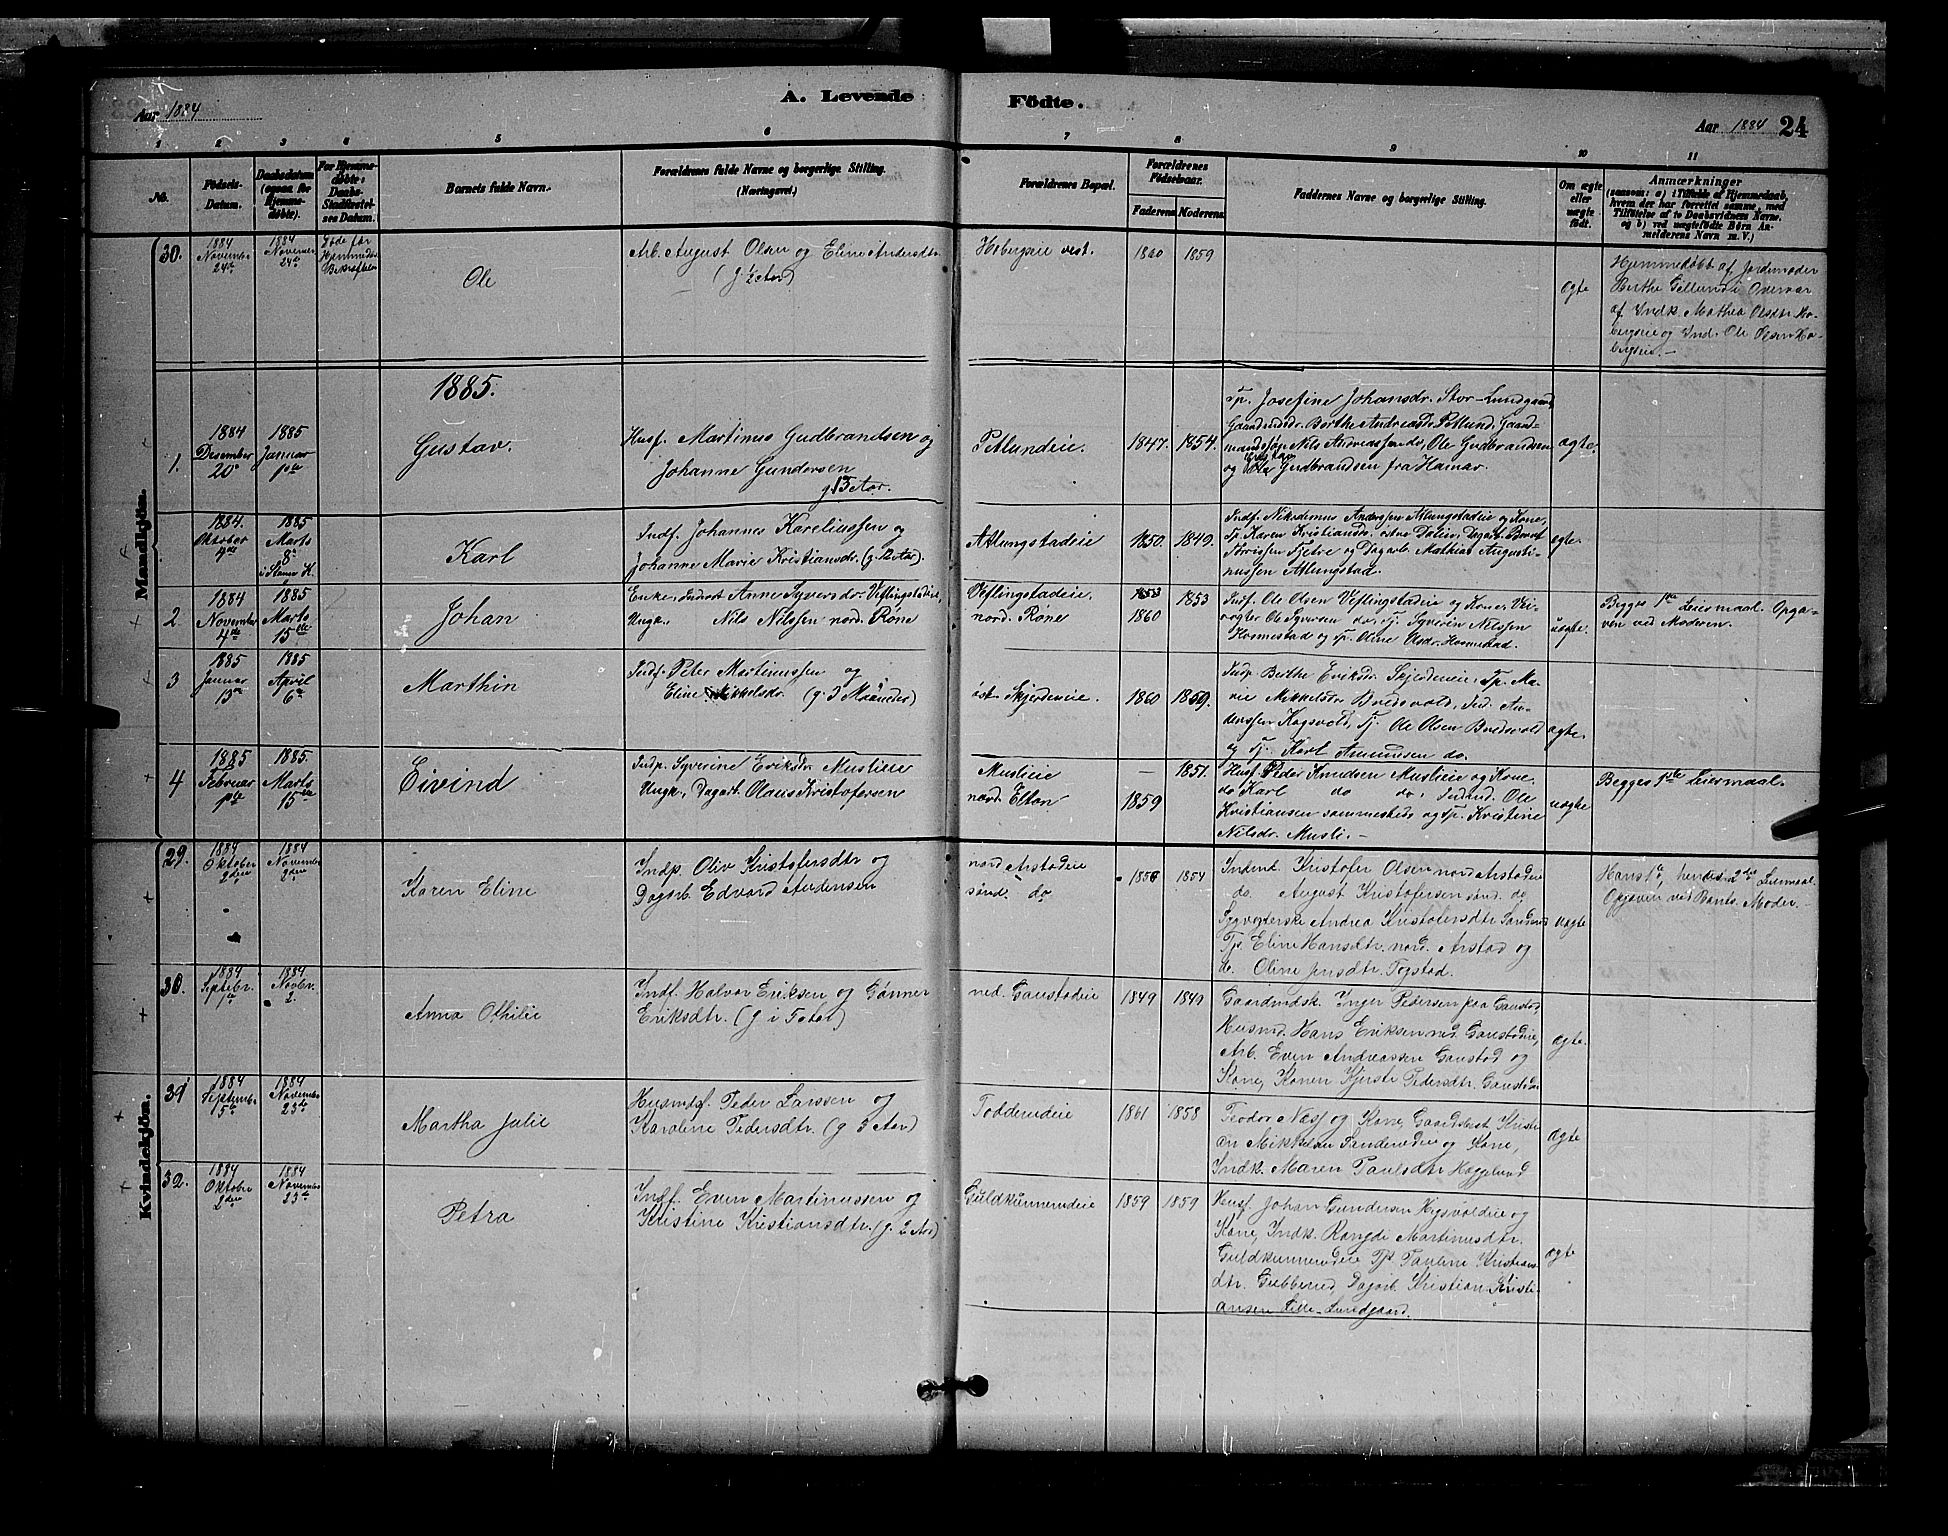 Aar 1884
A. Levende
Födte.
Aar 1884 24
1 2 3 4 5 6 7 8 9 10 11
No.
Födsels-
Datum.
Daabsdatum
(ogsaa for
Hjemme-
döbte).
For Hjemme-
döbte:
Daabs-
Stadfæstel-
ses Datum.
Barnets fulde Navn.
Forældrenes fulde Navne og borgerlige Stilling.
(Næringsvei.)
Forældrenes Bopæl.
Forældrenes
Födselsaar.
Faderens Moderens
Faddernes Navne og borgerlige Stilling.
Om ægte
eller
uægte
födt.
Anmærkninger
(saasom: a) i Tilfælde af Hjemmedaab,
hvem der har forrettet samme, med
Tilföielse af to Daabsvidners Navne,
og b) ved uægtefödte Börn An-
melderens Navn m. V.)
Mandkjön.
30.
1884
Novembr
24de
1884
November
24de
Döde før
Ole
Arb. August Olsen og Eline Andersdtr.
(g. ½ Aar)
Hobergseie vest.
1860 1859
ægte
Hjemmedøbt af Jordemoder
Berthe Gillund i Overvær
af Indk. Mathea Olsdtr. Ho-
bergseie og Ind. Ole Olsen Ho-
bergseie.—
1885.
1.
1884
Desember
20de
1885
Januar
1ste
Gustav.
Husf. Martinus Gudbrandsen og
Johanne Gundersen
g. 13 Aar.
Petlundeie.
1847. 1854.
Tp. Josefine Johansdr. Stor-Lundgaard,
Gaardmdsdr. Berthe Andreasdr. Petlund, Gaard-
mandssøn Nils Andreassen do, Ole Gudbrandsen
og Gustav Gudbrandsen fra Hamar.
ægte.
1884.
Oktober
4de
1885
Marts
8de
i Stange K.
Karl
Indf. Johannes Kareliussen og
Johanne Marie Kristiansdr. (g. 12 Aar).
Atlungstadeie.
1850. 1849.
Indf. Nikodemus Anderssen Atlungstadeie og Kone,
Tp. Karen Kristiansdr. østre Dalien, Dagarb. Bernt
Børrissen Tjetre og Dagarb. Mathias Augusti-
nussen Atlungstad.
ægte.
2
1884
November
4de
1885
Marts
15de
Johan
Enke, Inderst Anne Syversdr. Veflingstadeie,
Ungk. Nils Nilssen nord. Røne
Veflingstadeie,
nord. Røne
1860 1853
Indf. Ole Olsen Veflingstadeie og Kone, Vei-
vogter Ole Syversen do, Tj. Syverin Nilssen
Hommestad og Tp. Oline Olsdr. Hommestad.
uægte.
Begges 1ste Leiermaal. Opga-
ven ved Moderen.
3
1885
Januar
13de
1885
April
6te
Marthin
Indf. Peter Martinussen og
Eline Mikkelsdr. (g. 3 Maaneder)
øst. Skjerdeneie.
1860 1859.
Indp. Berthe Eriksdr. Skjerdeneie, Tp. Ma-
rie Mikkelsdr. Bredsvold, Ind. An-
derssen Kogsvold, Tj. Ole Olsen Bredsvold
og Tj. Karl Amundsen do.
ægte.
4
1885
Februar
1ste
1885.
Marts
15de
Eivind
Indp. Syverine Eriksdr. Muslieie
Ungk., Dagarb. Olaus Kristofersen
Muslieie
nord. Elton
— 1851.
1859
Husf. Peder Knudsen Muslieie og Kone
do Karl do do, Inderst Ole
Kristiansen sammesteds og Tp. Kristine
Nilsdr. Musli.—
uægte
Begges 1ste Leiermaal.
Kvindekjön.
29.
1884
Oktober
2den
1884
Novembr.
2den
Karen Eline
Indp. Oliv Kristofersdtr og
Dagarb. Edvard Andersen
nord. Arstadeie
sönd. do
1856 1854
Inderst Kristofer Olsen nord. Arstadeie
do. August Kristofersen sönd. do
Sygvogterske Andrea Kristofersdtr Sanderud
Tp. Eline Hansdtr. nord. Arstad og
do. Oline Jensdtr. Fogstad.
uægte
Hans 1ste, hendes 2det Leiermaal
Opgiven ved Barnets Moder.—
30.
1884
Septebr.
1ste
1884
Novbr.
2.
Anna Othilie
Indf. Halvor Eriksen og Gønner
Eriksdtr. (g. i 5 Aar)
ned. Gaustadeie
1849 1849
Gaardmdsk. Inger Pedersen paa Gaustad,
Husmd. Hans Eriksen ned. Gaustadeie,
Arb. Even Andreassen Gaustad og
Kone, Konen Kjersti Pedersdtr. Gaustadeie
ægte.
31
1884
Septembr.
15de
1884
Novembr.
23de
Martha Julie
Husmdf. Peder Larssen og
Karoline Pedersdtr. (g. 3 Aar)
Todderudeie
1861 1858
Teodor Næsj og Kone, Gaardsbest. Kristi-
an Mikkelsen Sanderudeie og Kone,
Indk. Maren Paulsdtr Haggelund
ægte
32.
1884
Oktobr.
2den
1884
Novembr.
23de
Petra
Indf. Even Martinussen og
Kristine Kristiansdtr. (g. 2 Aar)
Guldkunnerudeie
1859 1859
Husf. Johan Gundersen Hysvoldeie og
Kone, Indk. Rangdi Martinusdtr.
Guldkunnerudeie Tp. Pauline Kristians-
dtr. Gubberud, Dagarb. Kristian Kristi-
ansen Lille-Lundgaard.
ægte